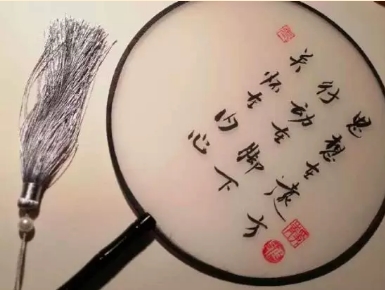 思想在遠方
行动在脚下
关怀在内心